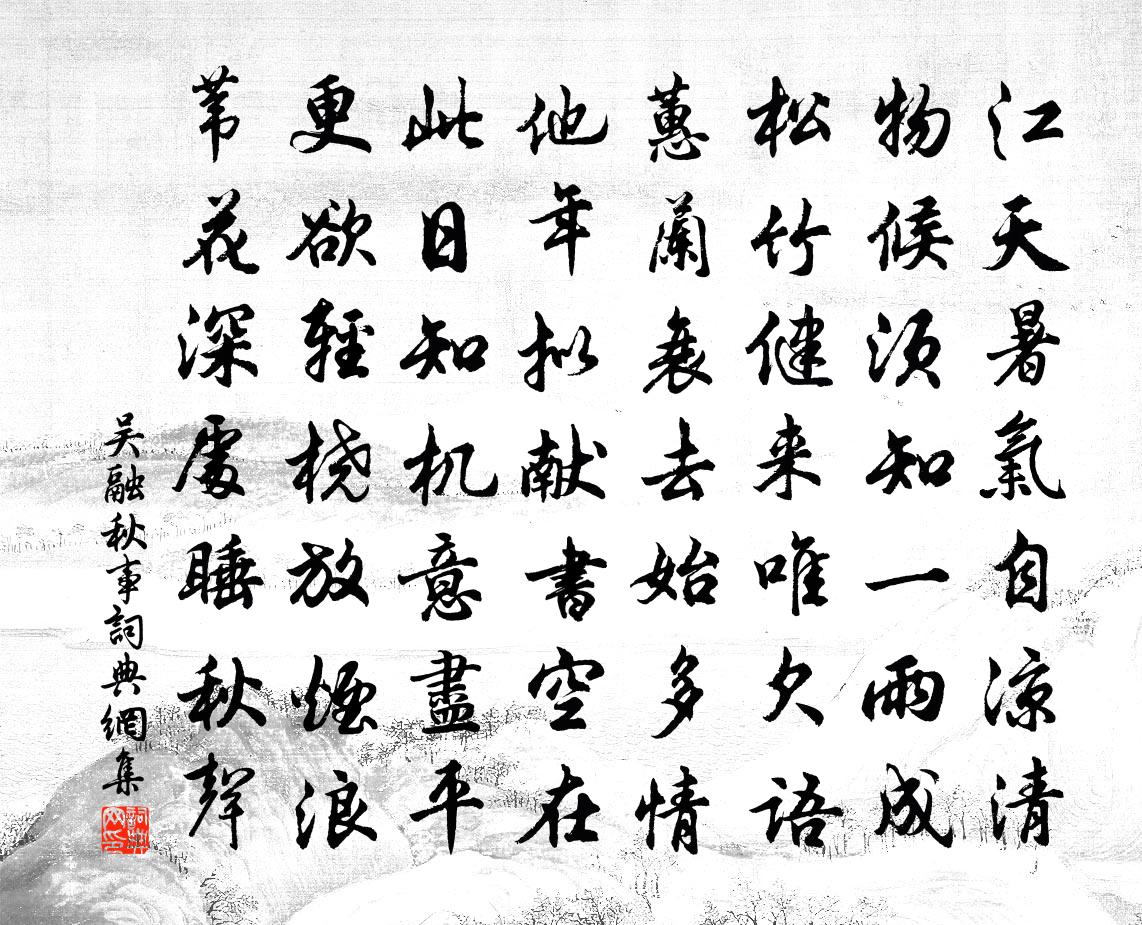 江天暑氣自凉清
物候須知一雨成
松竹健来唯欠語
蕙蘭衰去始多情
他年拟献書空在
此日知机意盡平
更欲輕橈放煙浪
葦花深處睡秋聲
吳融秋事詞典網集